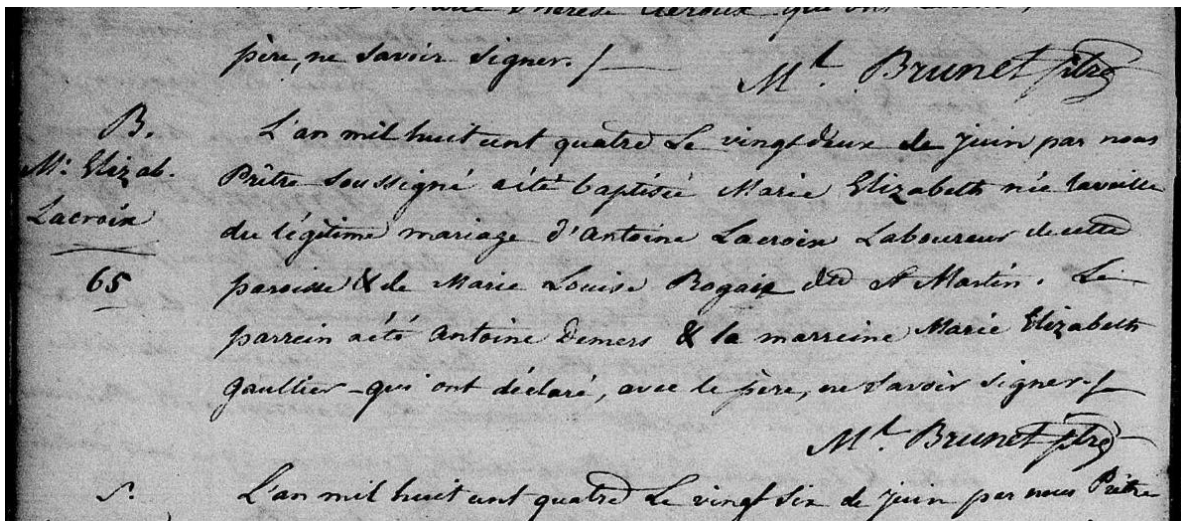 Marie Thérèse Leroux qui ont
père, ne savoir signer. /
Ml. Brunet ptre
B.
Me. Elizab.
Lacroix
65
L'an mil huit cent quatre le vingt deux de juin par nous
Prêtre soussigné a été baptisée Marie Elizabeth née la veille
du légitime mariage d'antoine Lacroix Laboureur de cette
paroisse & de Marie Louise Rogaix dte St Martin. Le
parrein a été antoine Demers & la marreine Marie Elizabeth
gaultier qui ont déclaré, avec le père, ne savoir signer. /
Ml. Brunet ptre
S.
L'an mil huit cent quatre le vingt six de juin par nous Prêtre